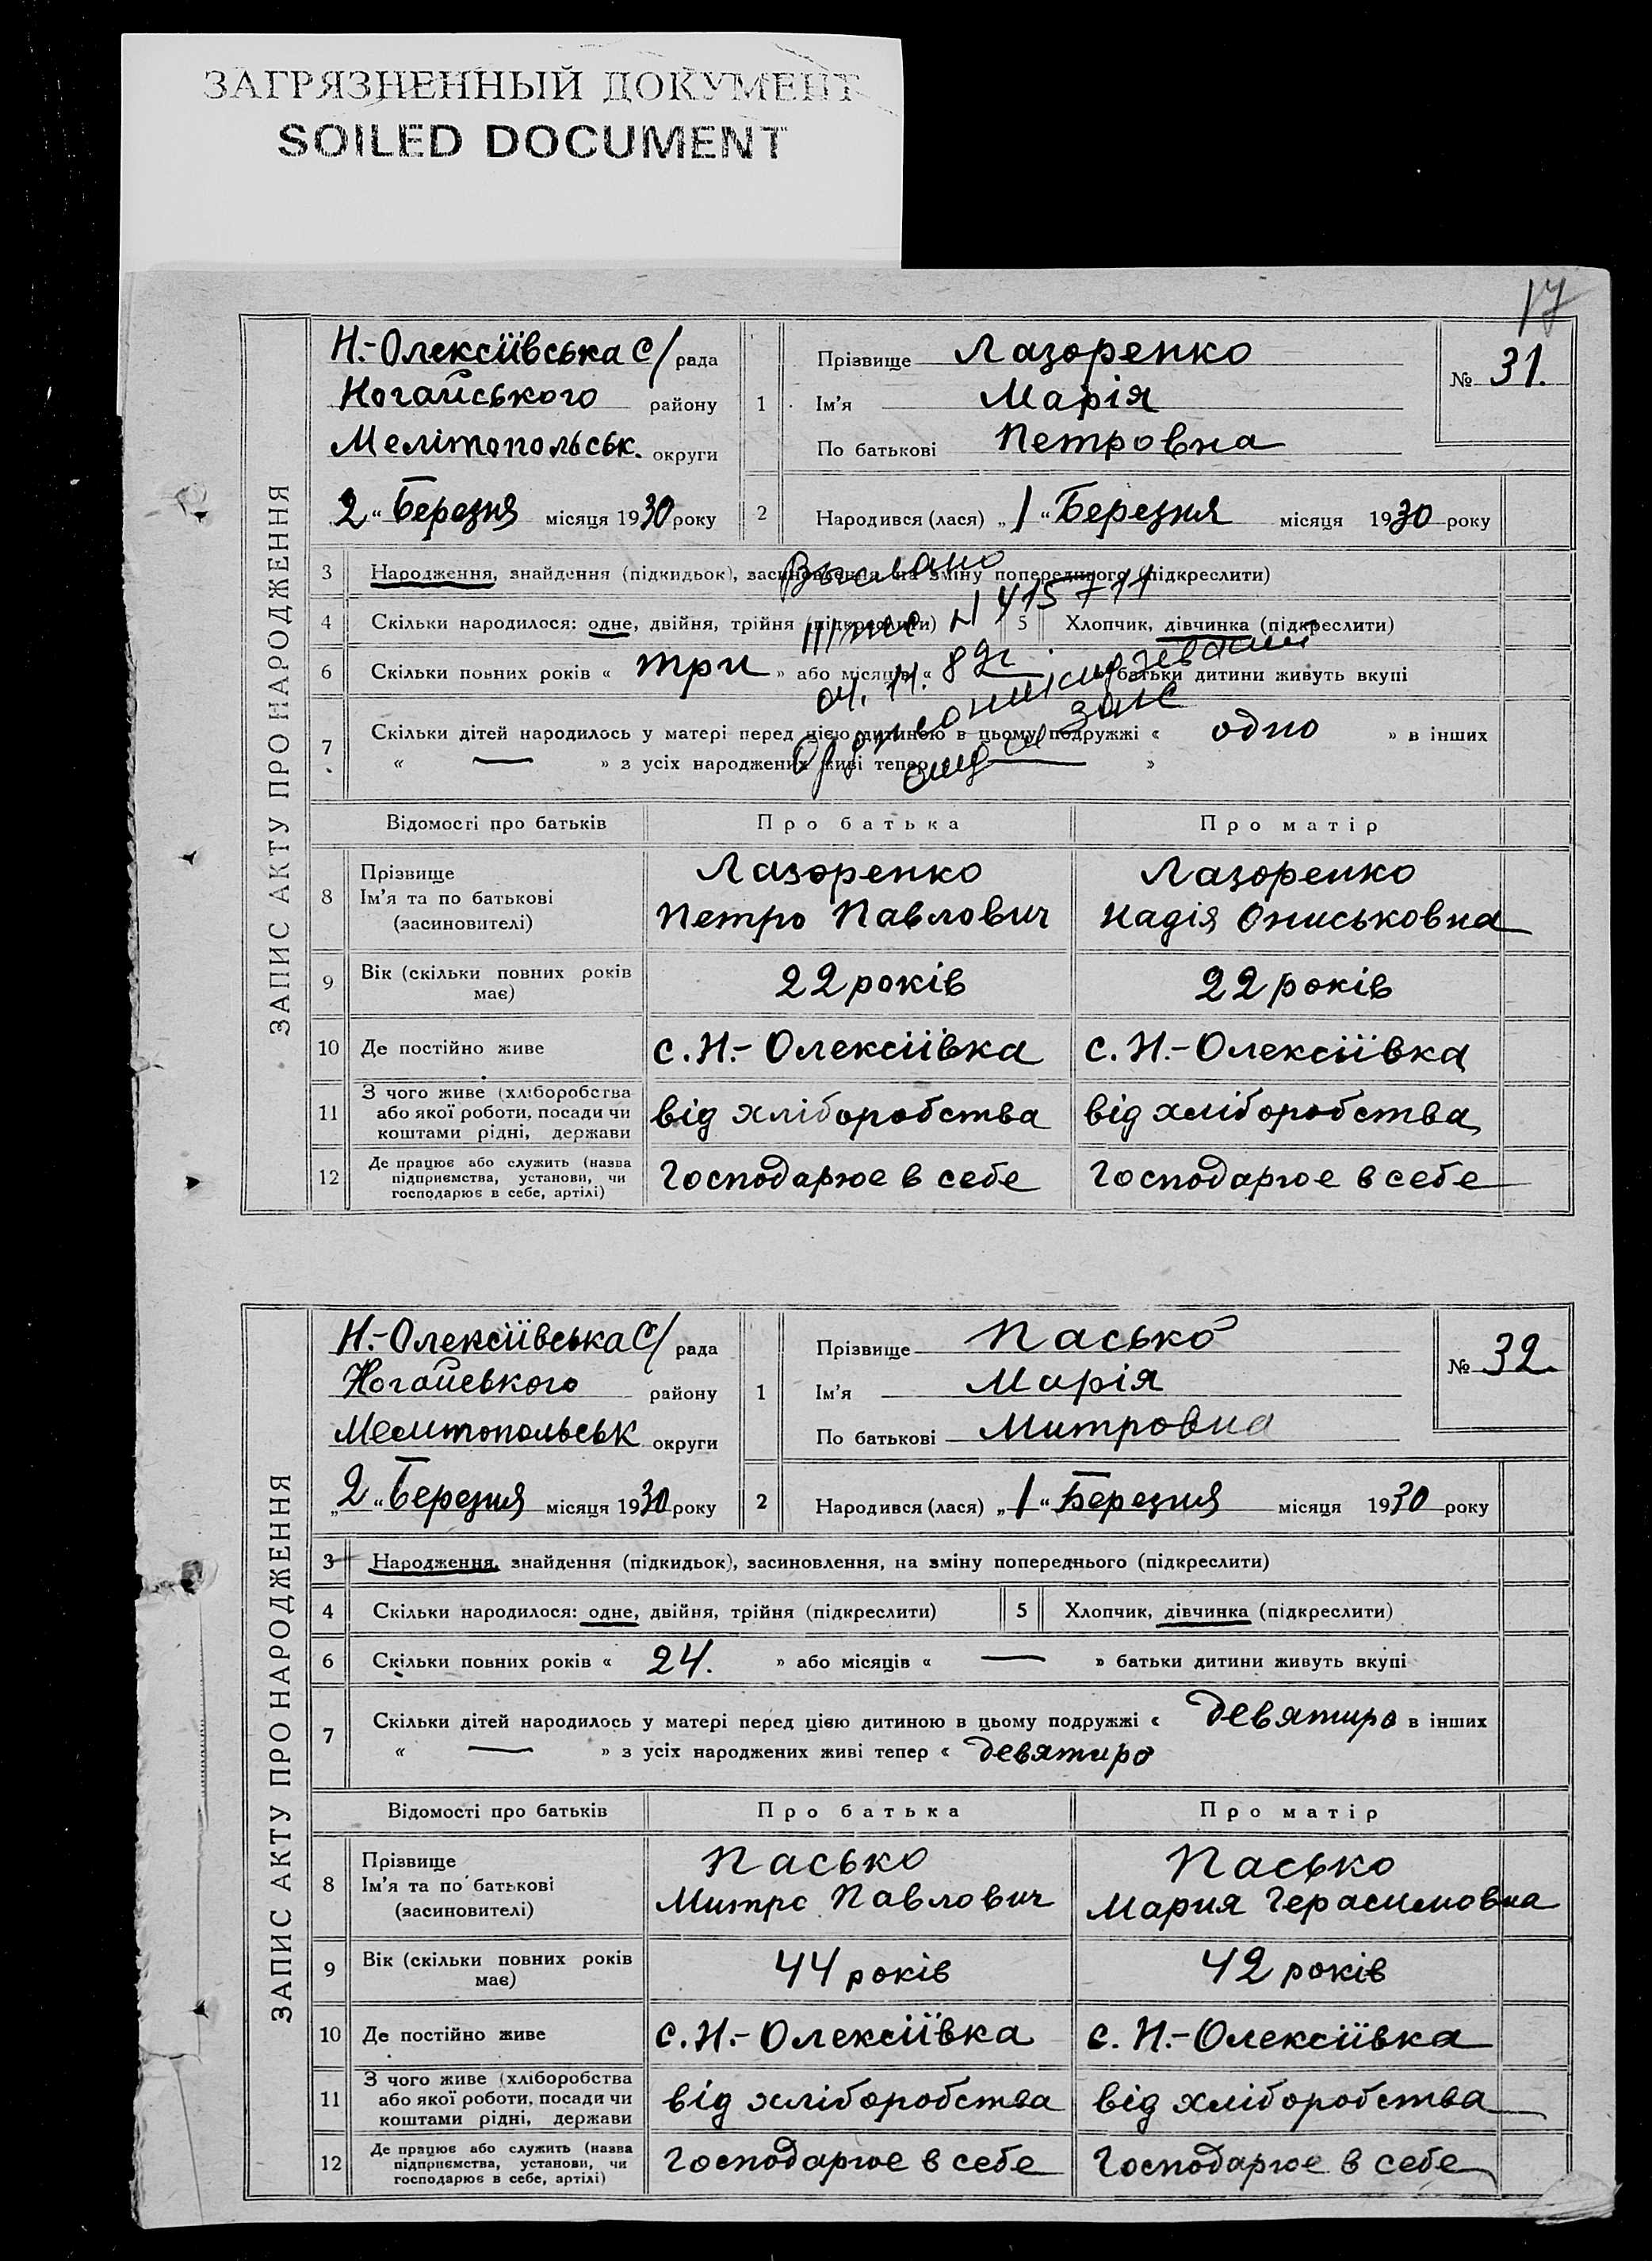 ЗАГРЯЗНЕННЫЙ ДОКУМЕНТ
SOILED DOCUMENT
17
ЗАПИС АКТУ ПРО НАРОДЖЕННЯ
Н.-Олексіївська С/ рада
Ногайського району
Мелітопольськ. округи
2 " Березня місяця 1930 року
1
Прізвище Лазоренко
Ім'я Марія
По батькові Петровна
№ 31.
2 Народився (лася) „ 1 " Березня місяця 1930 року
3 Народження, знайдення (підкидьок), засиновлення, на зміну попереднього (підкреслити)
Выслано
4 Скільки народилося: одне, двійня, трійня (підкреслити) 5 Хлопчик, дівчинка (підкреслити)
6 Скільки повних років « три » або місяців « » батьки дитини живуть вкупі
7 Скільки дітей народилось у матері перед цією дитиною в цьому подружжі « одно » в інших
« — » з усіх народжених живі тепер — »
Відомості про батьків Про батька Про матір
8 Прізвище Лазоренко Лазоренко
Ім'я та по батькові Петро Павлович Надія Ониськовна
(засиновителі)
9 Вік (скільки повних років має) 22 років 22 років
10 Де постійно живе с. Н.- Олексіївка с. Н.- Олексіївка
11 З чого живе (хліборобства
або якої роботи, посади чи від хліборобства від хліборобства
коштами рідні, держави
12 Де працює або служить (назва
підприємства, установи, чи Господарює в себе Господарює в себе
господарює в себе, артілі)
ЗАПИС АКТУ ПРО НАРОДЖЕННЯ
Н.-Олексіївська С/ рада
Ногайського району
Мелитопольськ округи
„ 2 " Березня місяця 1930 року
1
Прізвище Пасько
Ім'я Марія
По батькові Митровна
№ 32.
2 Народився (лася) „ 1 " Березня місяця 1930 року
3 Народження, знайдення (підкидьок), засиновлення, на зміну попереднього (підкреслити)
4 Скільки народилося: одне, двійня, трійня (підкреслити) 5 Хлопчик, дівчинка (підкреслити)
6 Скільки повних років « 24. » або місяців « — » батьки дитини живуть вкупі
7 Скільки дітей народилось у матері перед цією дитиною в цьому подружжі « девятиро в інших
« — » з усіх народжених живі тепер « девятиро
Відомості про батьків Про батька Про матір
8 Прізвище Пасько Пасько
Ім'я та по батькові Митро Павлович Мария Герасимовна
(засиновителі)
9 Вік (скільки повних років має) 44 років 42 років
10 Де постійно живе с. Н.- Олексіївка с. Н.- Олексіївка
11 З чого живе (хліборобства
або якої роботи, посади чи від хліборобства від хліборобства
коштами рідні, держави
12 Де працює або служить (назва
підприємства, установи, чи Господарює в себе Господарює в себе
господарює в себе, артілі)